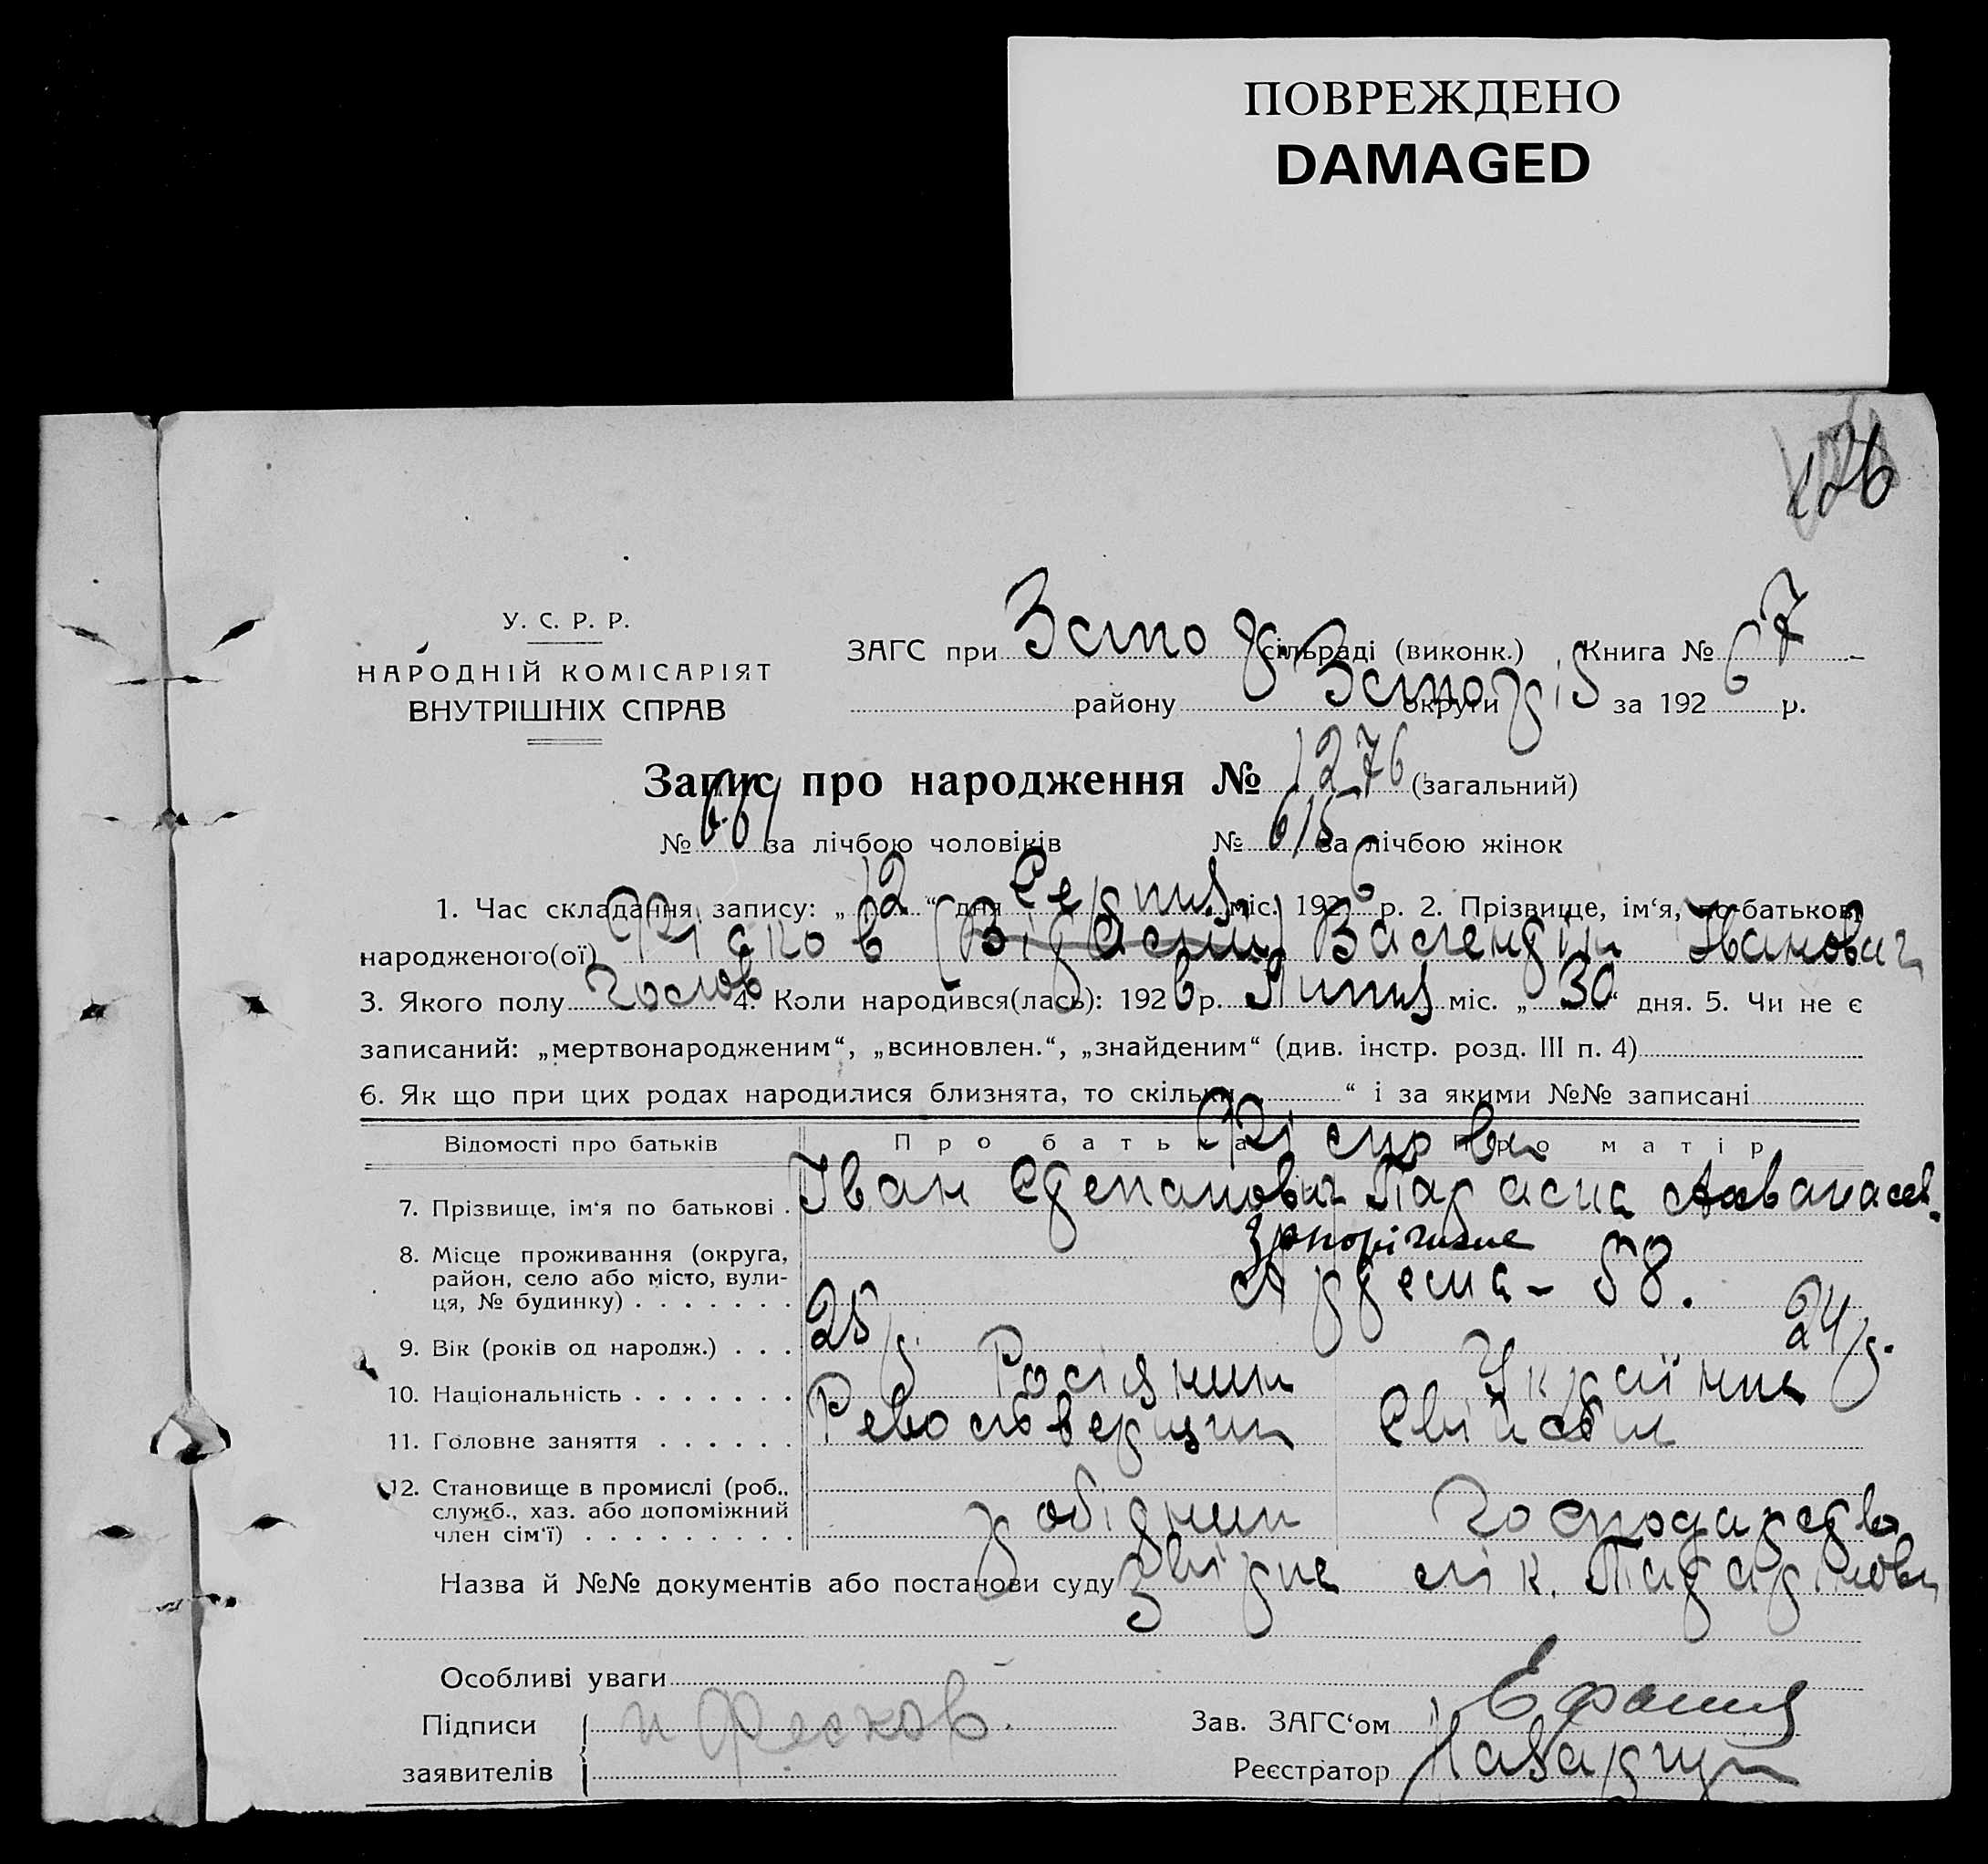 ПОВРЕЖДЕНО
DAMAGED
126
У. С. Р. Р.
НАРОДНІЙ КОМІСАРІЯТ
ВНУТРІШНІХ СПРАВ
ЗАГС при сільраді (виконк.) Книга № 7
району округи за 1926 р.
Запис про народження № 1276 (загальний)
№ 661 за лічбою чоловіків № 615 за лічбою жінок
1. Час складання запису: „12“ дня Серпня міс. 1926 р. 2. Прізвище, ім‘я, по-батькові
народженого(ої) Фісков Валентін Іванович
3. Якого полу 4. Коли народився(лась): 1926 р. Липня міс. „30“ дня. 5. Чи не є
записаний: „мертвонародженим“, „всиновлен.“, „знайденим“ (див. інстр. розд. III п. 4)
6. Як що при цих родах народилися близнята, то скільки „ “ і за якими №№ записані
Фіскови
Відомості про батьків Про батька Про матір
7. Прізвище, ім‘я по батькові . Іван Степанович Параска
8. Місце проживання (округа,
район, село або місто, вули-
ця, № будинку) . . . . . . . 58.
9. Вік (років од народж.) . . . 25 р. 24 р.
10. Національність . . . . . . . Росіянин Українка
11. Головне заняття . . . . . . Револьверщик
12. Становище в промислі (роб.,
служб., хаз. або допоміжний
член сім‘ї) . . . . . . . . . робідник господарство
Назва й №№ документів або постанови суду лік.
Особливі уваги
Підписи
заявителів и Фесков.
Зав. ЗАГС‘ом
Реєстратор